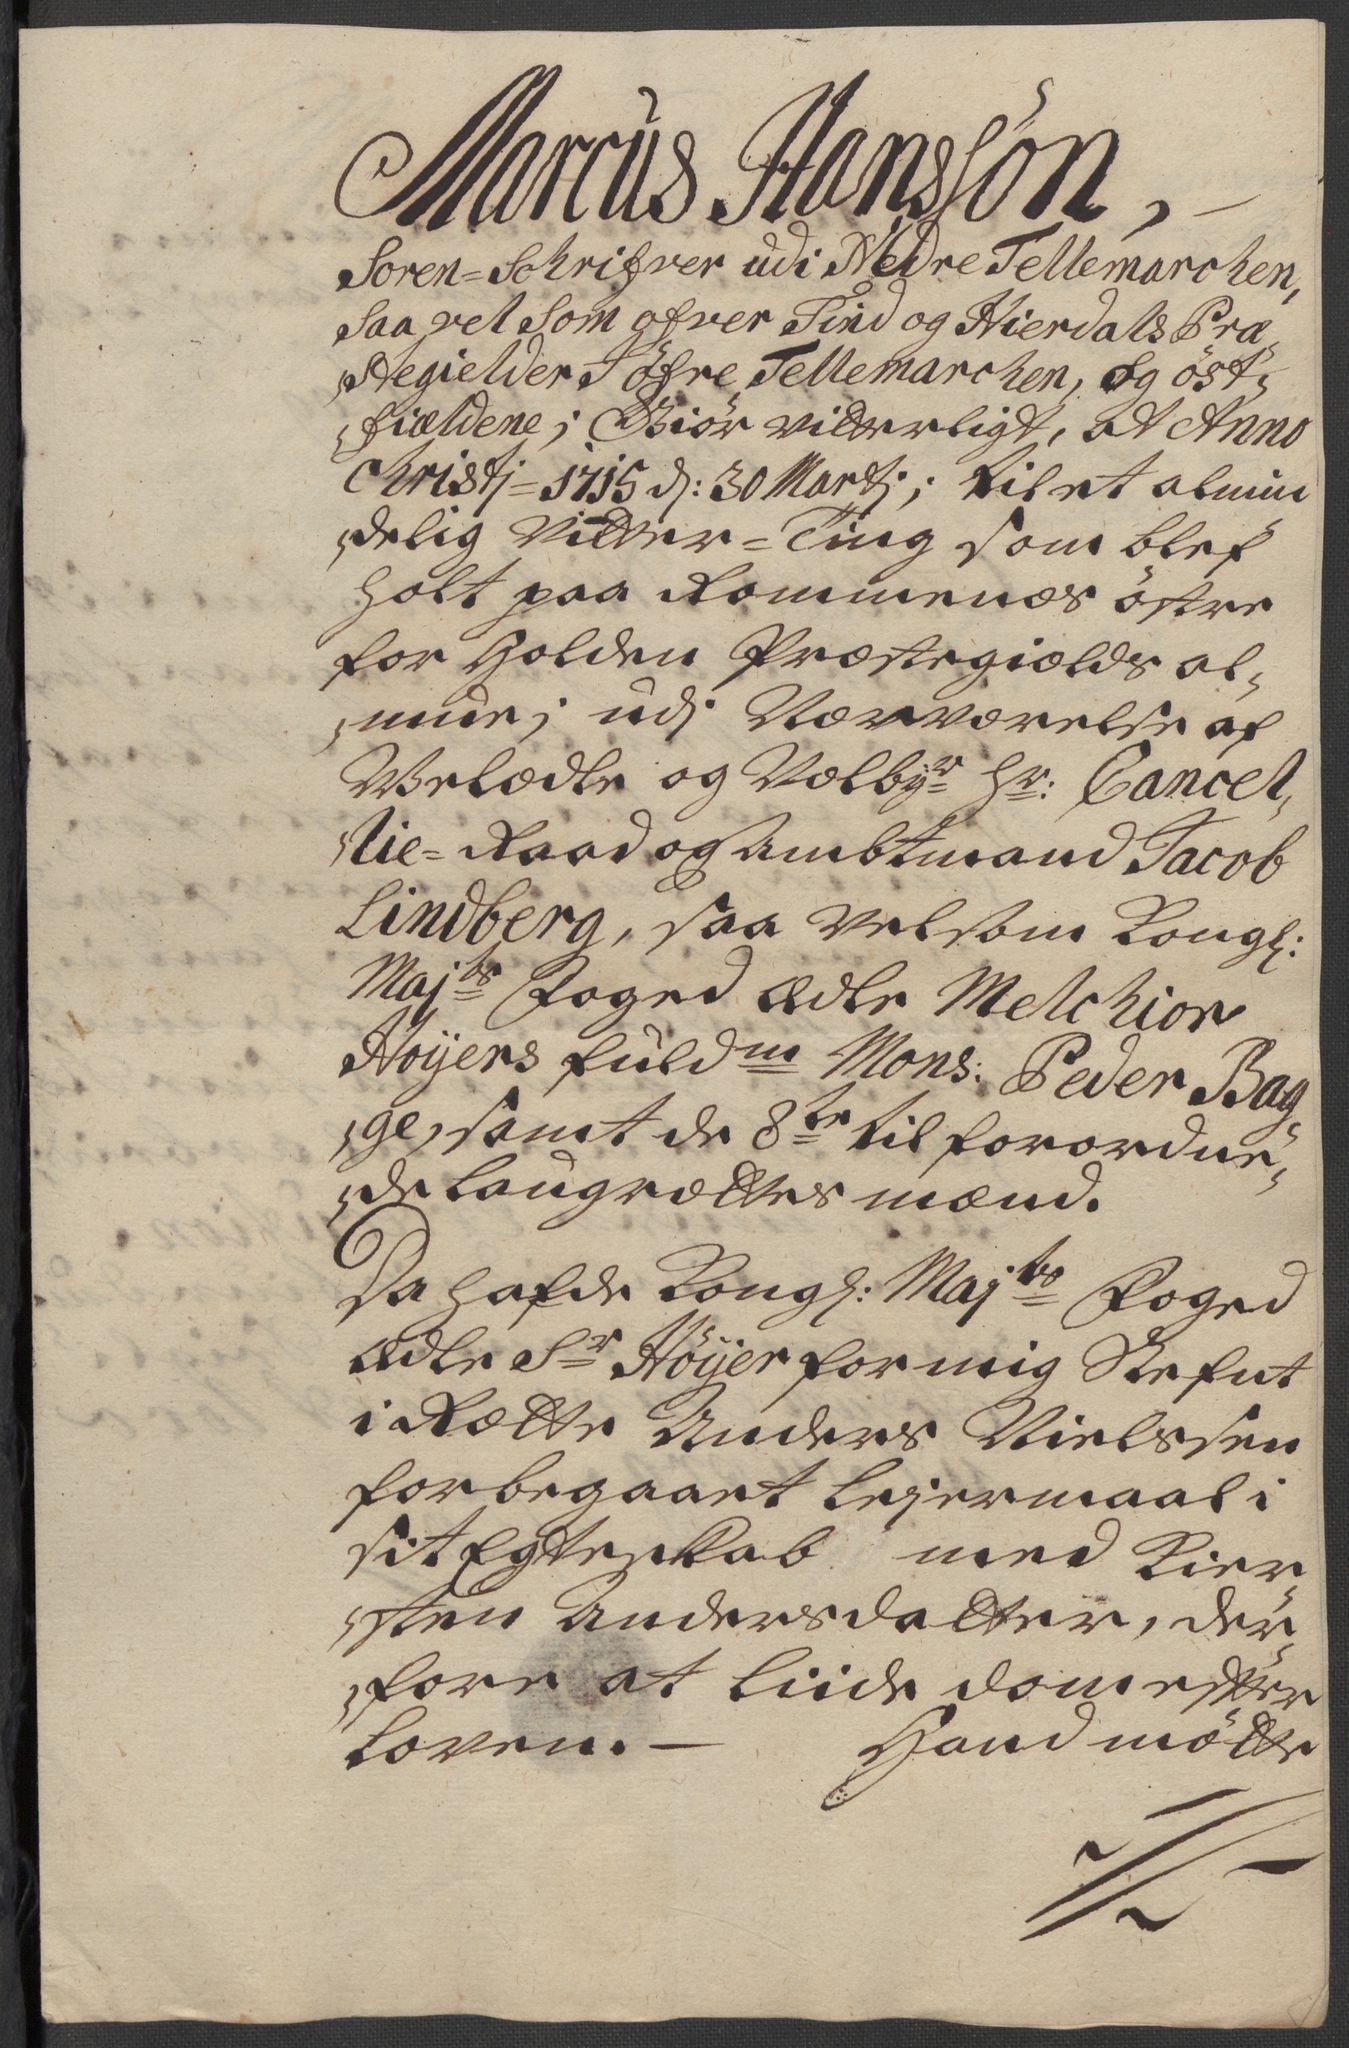 Marcus Hanssön,
Soren=Schrifver udi Nedre Tellemarchen,
Saa vel som ofver Tind og Hierdals Præ,
,stegielder J öfre Tellemarchen, og öst,
,fieldene; Giör vitterligt, at Anno
Christj= 1715 dj: 30 Martj; til et almin
,delig Vitter=Ting som blef
holt paa Rommenæs östre
for Holden Præstegiælds al,
,mue; udj Nærværelse af
Welædle og Vælbÿr hr: Cancel,
,lie=Raad og Ambtmand Jacob
Lindberg, saa velsom Kongl:
Majts Foged Ædle Melchior
Höÿers fuldm Mons: Peder Bag,
,ge, samt de 8te til forordne,
,de laugrættes mænd.
Da hafde Kongl: Majts Foged
Ædle Sr Höÿer for mig Stefnt
i Rætte Anders Nielssen
for begaaet Lejermaal i
sit Egteskab med Kier,
,sten Andersdatter, der,
,fore at liide dom efter
Loven. — Hand mötte